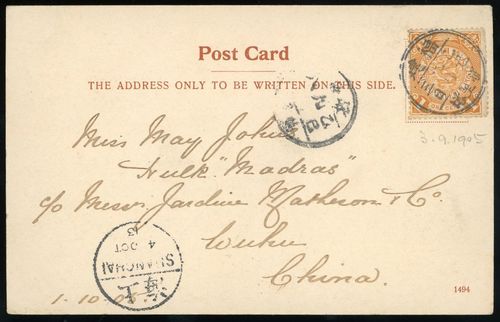 Post Card
THE ADDRESS ONLY TO BE WRITTEN ON THIS SIDE.
3.9.1905
Miss May John
Hulk "Madras"
c/o Messrs Jardine Matheson & Co.
Wuhu
China.
SHANGHAI
4 OCT
上海
1.10.0
1494